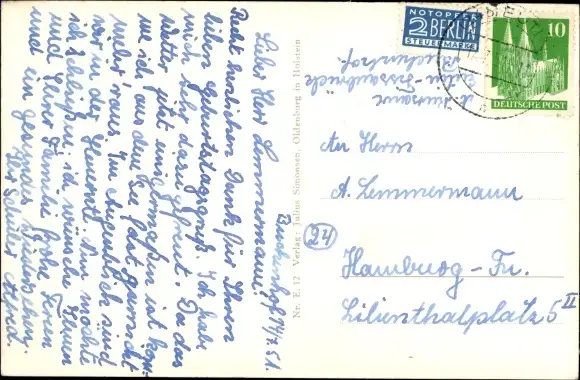 Buchenhof 14/7.51.
Lieber Herr Lemmermann!
Recht herzlichen Dank für Ihren
lieben Geburtstagsgruß. Ich habe
mich sehr darüber gefreut. Da das
Wetter jetzt einigermaßen ist kom-
me ich aus dem See fast garnicht
mehr raus. Im Augenblick sind
wir in der Heuernte. Nun möchte
ich schließen, ich wünsche Ihnen
und Ihrer Familie frohe Ferien
und ein gesundes Wiedersehen.
Ihr Schüler
Nr. E. 12 Verlag: Julius Simonsen, Oldenburg in Holstein
NOTOPFER
2 BERLIN
STEUERMARKE
10
DEUTSCHE POST
Buchenhof.
An Herrn
A. Lemmermann
24
Hamburg - Fu.
Lilienthalplatz 5 II